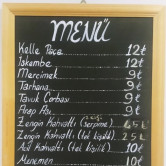 MENÜ
Kelle Paça 12₺
İşkembe 12₺
Mercimek 9₺
Tarhana 9₺
Tavuk Çorbası 9₺
9₺
Zengin Kahvaltı (serpme) 45₺
Zengin Kahvaltı (tek kişilik) 25₺
Kahvaltı (tek kişilik) 10₺
Menemen 10₺